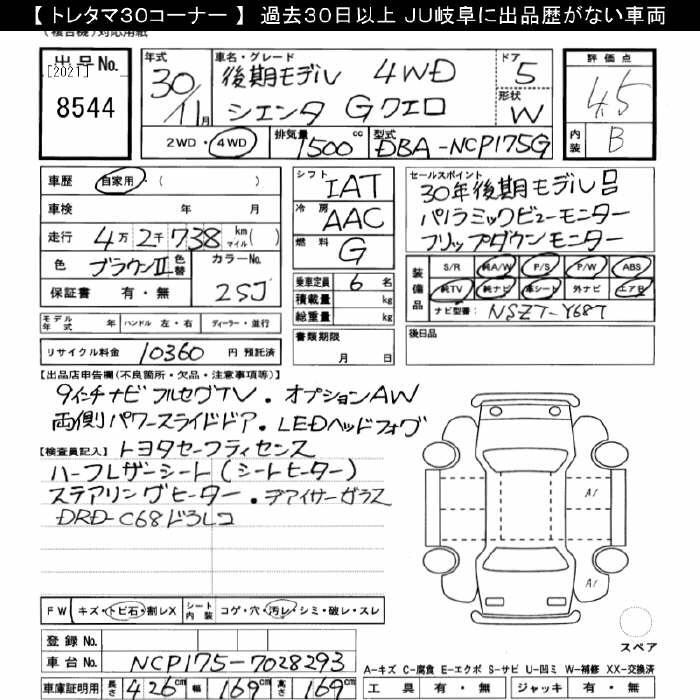 【 トレタマ30コーナー 】 過去30日以上 JU岐阜に出品歴がない車両
(複合機)対応用紙
出品No. [2021] 8544
年式 30/11月
車名・グレード 後期モデル 4WD
シエンタ Gクエロ
ドア 5
形状 W
評価点 4.5
内装 B
2WD・4WD
排気量 1500 cc
型式 DBA-NCP175G
車歴 自家用・( )
車検 年 月
走行 4万2千738 km マイル( )
色 ブラウンII 色替 カラーNo. 2SJ
保証書 有・無
シフト IAT
冷房 AAC
燃料 G
乗車定員 6 名
積載量 kg
総重量 kg
書類期限 月 日
セールスポイント
30年後期モデル
パノラミックビューモニター
フリップダウンモニター
装備品
S/R 純A/W P/S P/W ABS
純TV 純ナビ 革シート 外ナビ エアB
ナビ型番 NSZT-Y68T
モデル年式 年 ハンドル 左・右 ディーラー・並行
後日品
リサイクル料金 10360 円 預託済
【出品店申告欄(不良箇所・欠品・注意事項等)】
9インチナビ フルセグTV . オプションAW
両側パワースライドドア . LEDヘッドフォグ
【検査員記入】トヨタセーフティセンス
ハーフレザーシート (シートヒーター)
ステアリングヒーター . デアイサーガラス
DRD-C68ドラレコ
A1
A1
FW キズ・トビ石・割レX シート内装 コゲ・穴・汚レ・シミ・破レ・スレ
スペア
登録No.
車台No. NCP175-7028293
車庫証明用 長さ 426cm 幅 169cm 高さ 169cm
A-キズ C-腐食 E-エクボ S-サビ U-凹ミ W-補修 XX-交換済
工具 有・無 ジャッキ 有・無